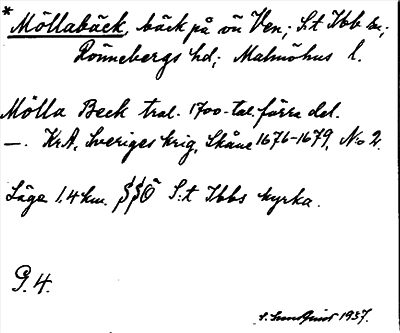 * Möllabäck, bäck på ön Ven; S:t Ibb sn;
Rönnebergs hd; Malmöhus l.
Mölla Beck trol. 1700-tal. förra del.
—. KrA, Sveriges krig, Skåne 1676-1679, No 2.
Läge 1,4 km. SSÖ S:t Ibbs kyrka.
G. 4.
S. Sundquist 1937.